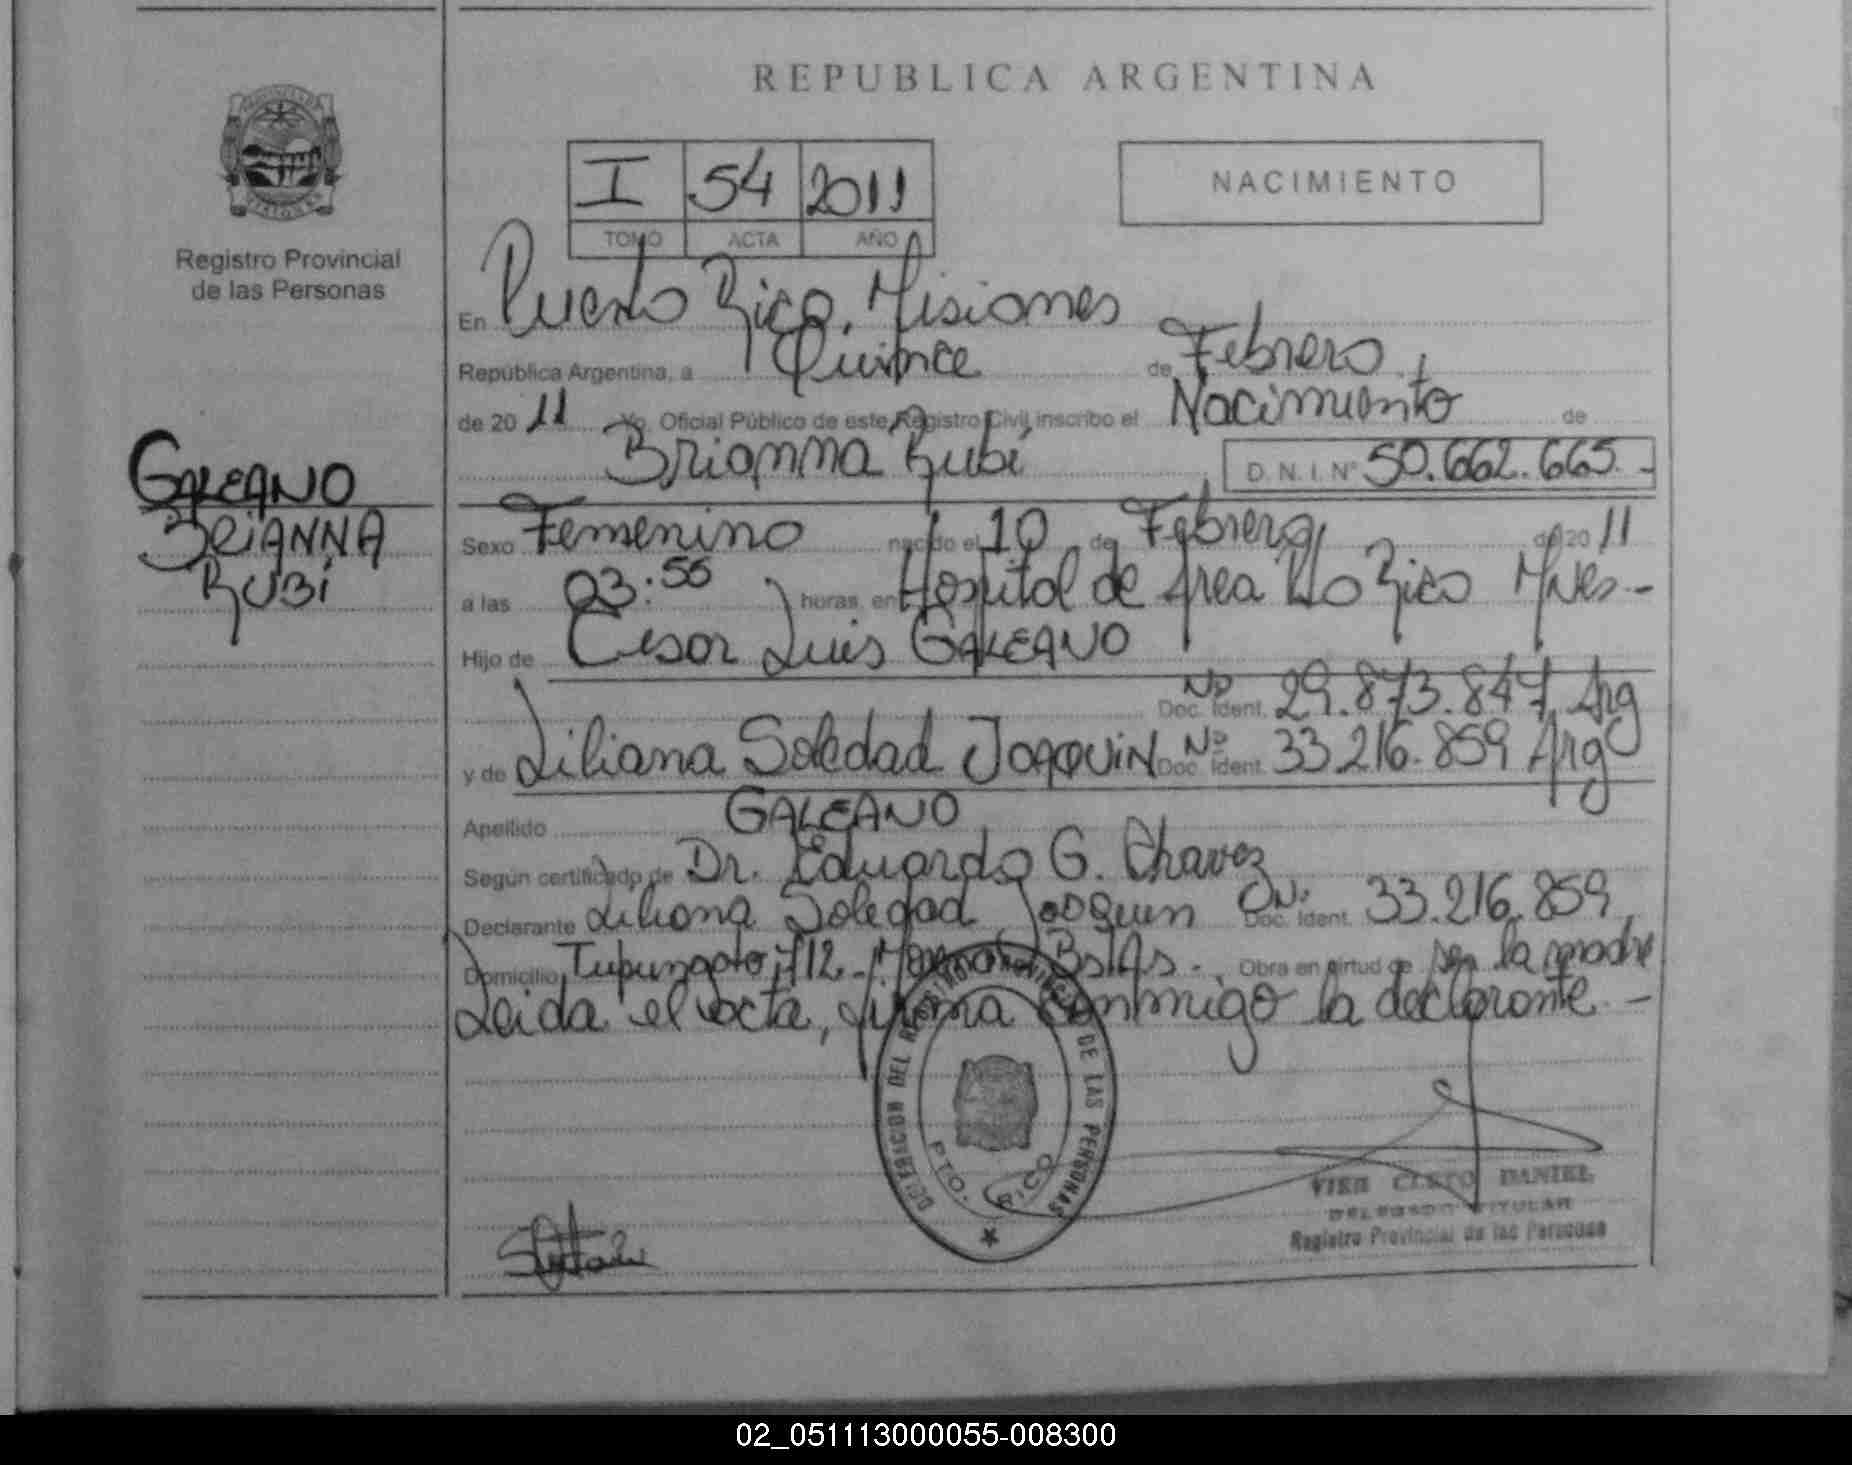 REPUBLICA ARGENTINA
NACIMIENTO
I 54 2011
TOMO ACTA AÑO
Registro Provincial
de las Personas
GALEANO
BRIANNA
RUBÍ
En Puerto Rico, Misiones
República Argentina, a Quince de Febrero
de 20 11 Yo, Oficial Público de este Registro Civil, inscribo el Nacimiento de
Brianna Rubí D.N.I. Nº 50.662.665.-
Sexo Femenino nacido el 10 de Febrero de 20 11
a las 03:55 horas, en Hospital de Area Pto Rico Mnes.-
Hijo de Cesar Luis GALEANO
Nº Doc. Ident. 29.873.847 Arg
y de Liliana Soledad JOAQUIN Nº Doc. Ident. 33.216.859 Arg
Apellido GALEANO
Según certificado de Dr. Eduardo G. Chavez
Declarante Liliana Soledad Joaquin Doc. Ident. 33.216.859
Domicilio Tupungato 712 - Bs As. Obra en virtud de ser la madre
Leida el acta, firma conmigo la declarante.-
DELEGACION DEL REGISTRO PROVINCIAL DE LAS PERSONAS
PTO. RICO
DANIEL
DELEGADO TITULAR
Registro Provincial de las Personas
02_051113000055-008300